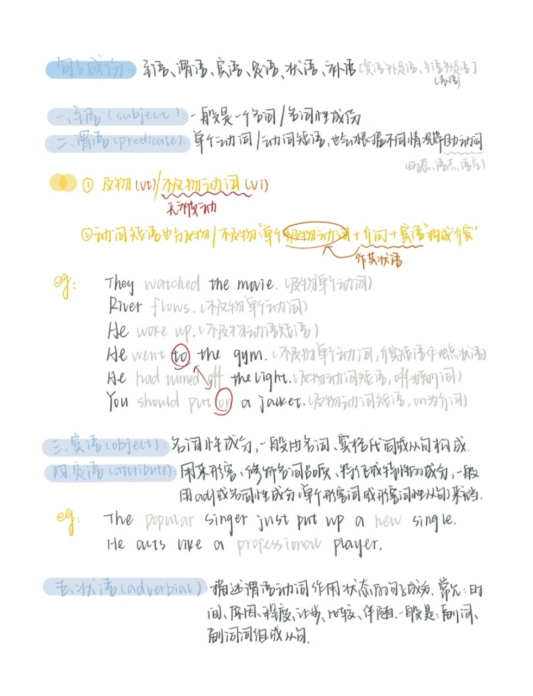 句子成份 主语、谓语、宾语、定语、状语、补语[宾语补足语、主语补足语]
(表语)
一.主语(subject): 一般是一个名词/名词性成份
二.谓语(predicate): 单个动词/动词短语,也会根据不同情况带助动词
(时态、语态、语气)
① 及物(vt)/不及物动词(vi)
无被动
②动词短语也分及物/不及物"单个不及物动词+介词+宾语"构成介宾"
作其状语
eg: They watched the movie.(及物单个动词)
River flows.(不及物单个动词)
He woke up.(不及物动词短语)
He went to the gym.(不及物单个动词,介宾短语作地点状语)
He had turned off the light.(及物动词短语,off为副词)
You should put on a jacket.(及物动词短语,on为介词)
三.宾语(object): 名词性成分,一般由名词、宾格代词或从句构成.
四.定语(attribute): 用来形容、修饰名词品质、特征或特性的成分,一般
用adj或名词性成分(单个形容词或形容词性从句)来当.
eg: The popular singer just put up a new single.
He acts like a professional player.
五.状语(adverbial): 描述谓语动词作用状态的句子成分.常为:时
间、原因、程度、让步、比较、伴随.一般是:副词、
副词词组或从句.